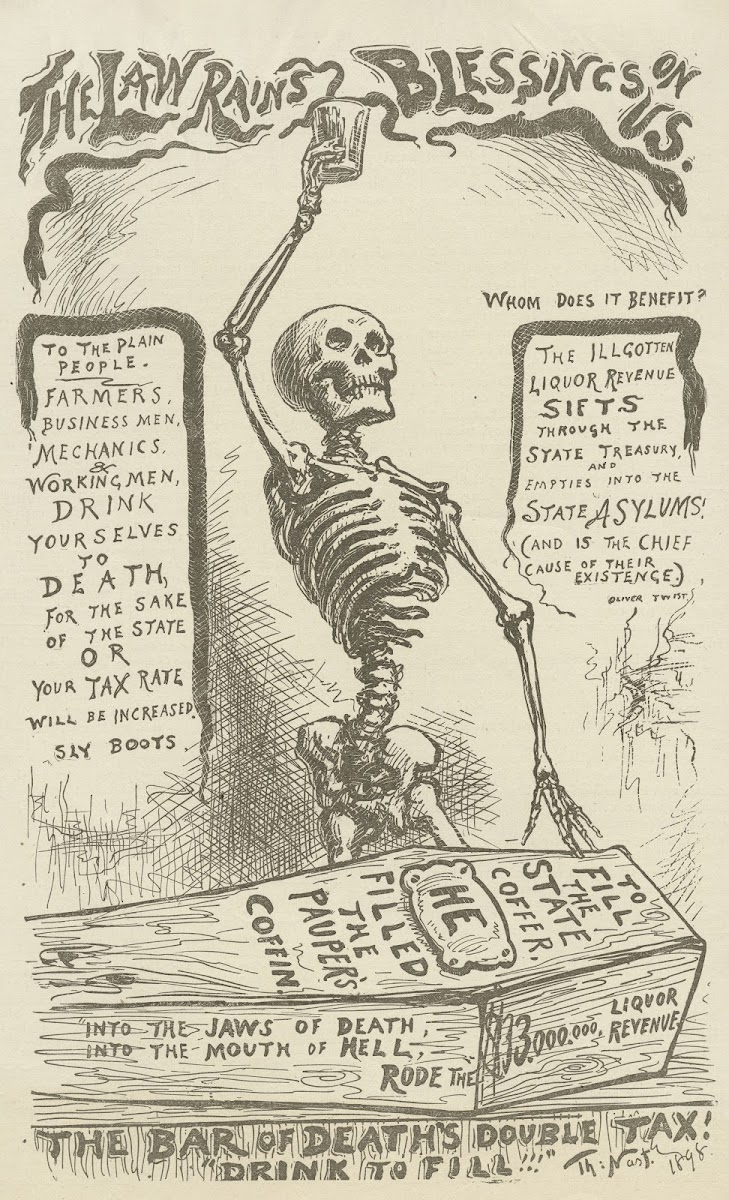 THE LAW RAINS BLESSINGS ON US.
TO THE PLAIN
PEOPLE.
FARMERS,
BUSINESS MEN,
MECHANICS,
&
WORKING MEN,
DRINK
YOURSELVES
TO
DEATH,
FOR THE SAKE
OF THE STATE
OR
YOUR TAX RATE
WILL BE INCREASED.
SLY BOOTS.
WHOM DOES IT BENEFIT?
THE ILLGOTTEN
LIQUOR REVENUE
SIFTS
THROUGH THE
STATE TREASURY,
AND
EMPTIES INTO THE
STATE ASYLUMS!
(AND IS THE CHIEF
CAUSE OF THEIR
EXISTENCE.)
OLIVER TWIST
TO
FILL
THE
STATE
COFFER,
HE
FILLED
THE
PAUPER'S
COFFIN.
"INTO THE JAWS OF DEATH,
INTO THE MOUTH OF HELL,
RODE THE
$13.000.000, LIQUOR
REVENUE
THE BAR OF DEATH'S DOUBLE TAX!
"DRINK TO FILL!!!"
Th: Nast. 1898